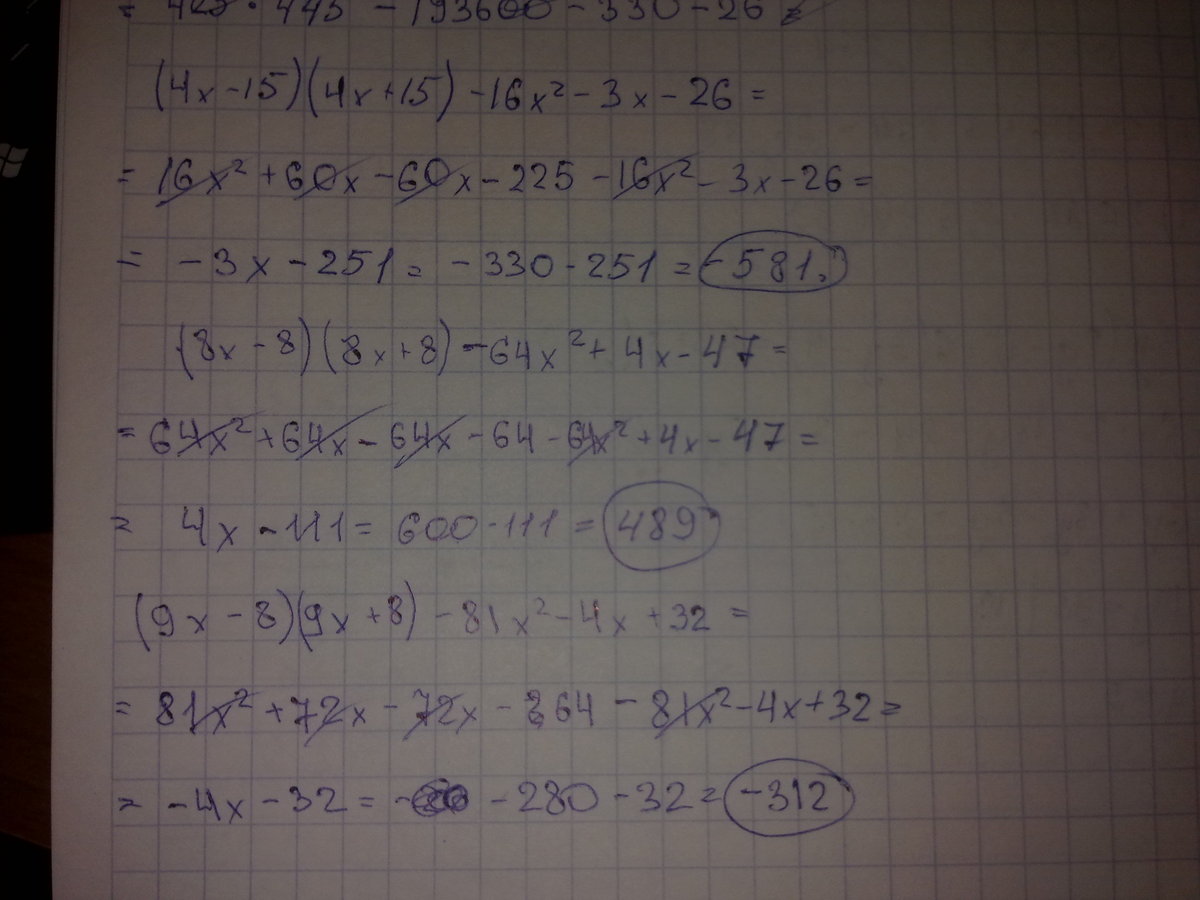 = 425 · 445 - 193600 - 330 - 26 =
(4x - 15)(4x + 15) - 16x² - 3x - 26 =
= 16x² + 60x - 60x - 225 - 16x² - 3x - 26 =
= - 3x - 251 = - 330 - 251 = -581.
(8x - 8)(8x + 8) - 64x² + 4x - 47 =
= 64x² + 64x - 64x - 64 - 64x² + 4x - 47 =
= 4x - 111 = 600 - 111 = 489
(9x - 8)(9x + 8) - 81x² - 4x + 32 =
= 81x² + 72x - 72x - 64 - 81x² - 4x + 32 =
= - 4x - 32 = - 280 - 32 = -312